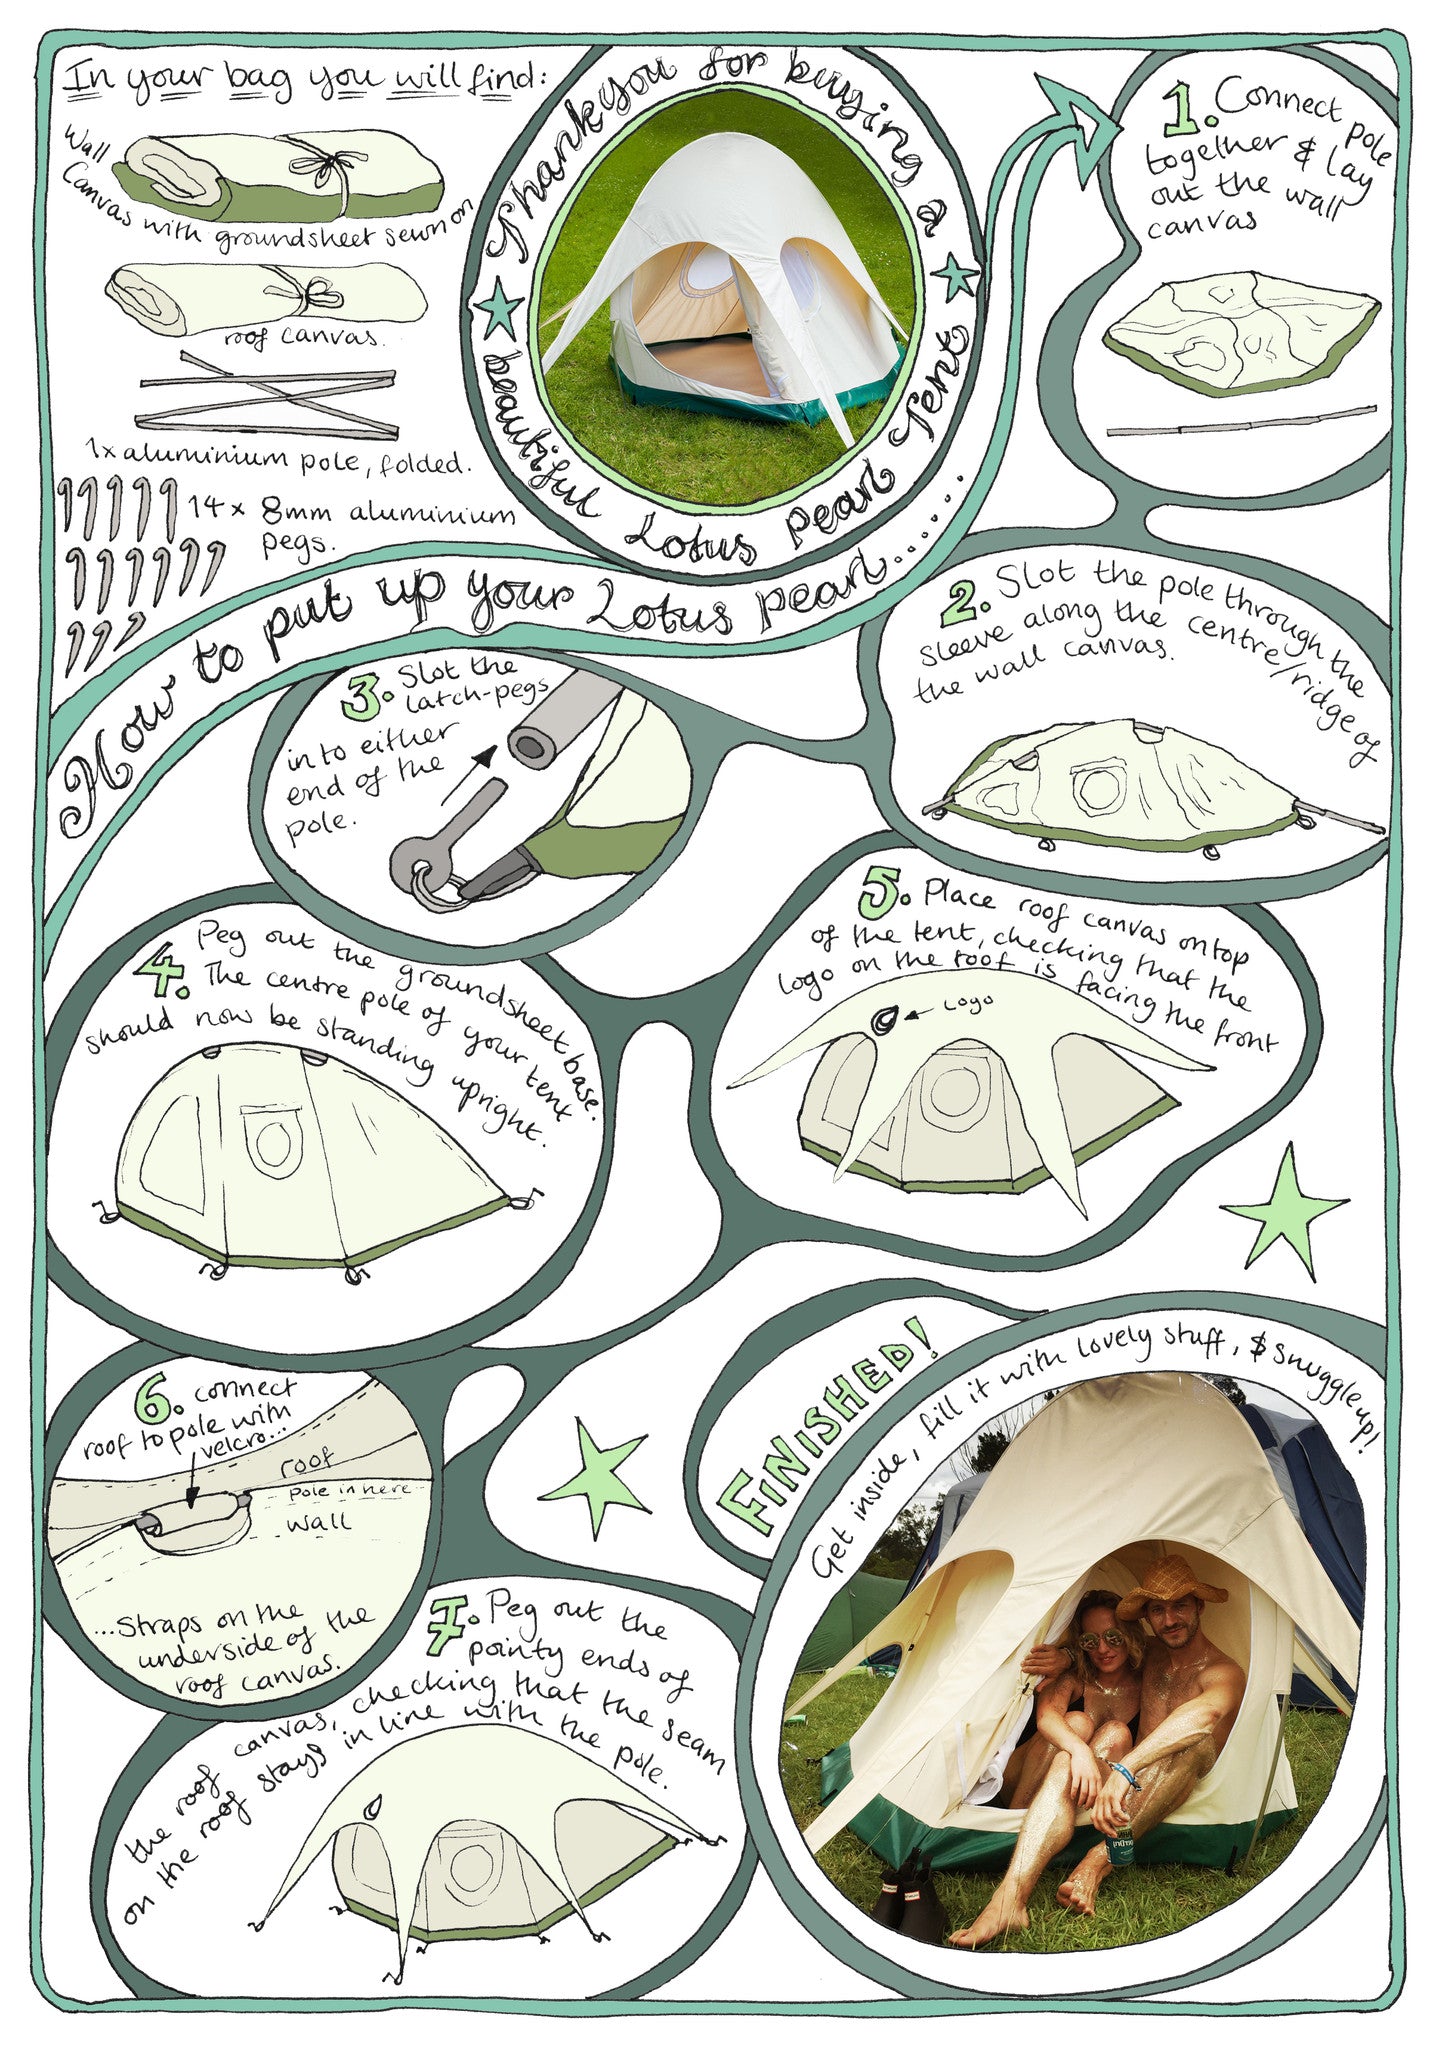 In your bag you will find:
Wall
Canvas with groundsheet sewn on
roof canvas.
1x aluminium pole, folded.
14 x 8mm aluminium
pegs.
Thankyou for buying a
beautiful Lotus pearl Tent
How to put up your Lotus pearl......
1. Connect pole
together & lay
out the wall
canvas
2. Slot the pole through the
sleeve along the centre/ridge of
the wall canvas.
3. Slot the
latch-pegs
into either
end of the
pole.
4. Peg out the groundsheet base.
The centre pole of your tent
should now be standing upright.
5. Place roof canvas on top
of the tent, checking that the
logo on the roof is facing the front
Logo
6. connect
roof to pole with
velcro...
roof
pole in here
wall
...Straps on the
underside of the
roof canvas.
7. Peg out the
pointy ends of
the roof canvas, checking that the seam
on the roof stays in line with the pole.
FINISHED!
Get inside, fill it with lovely stuff, & snuggle up!